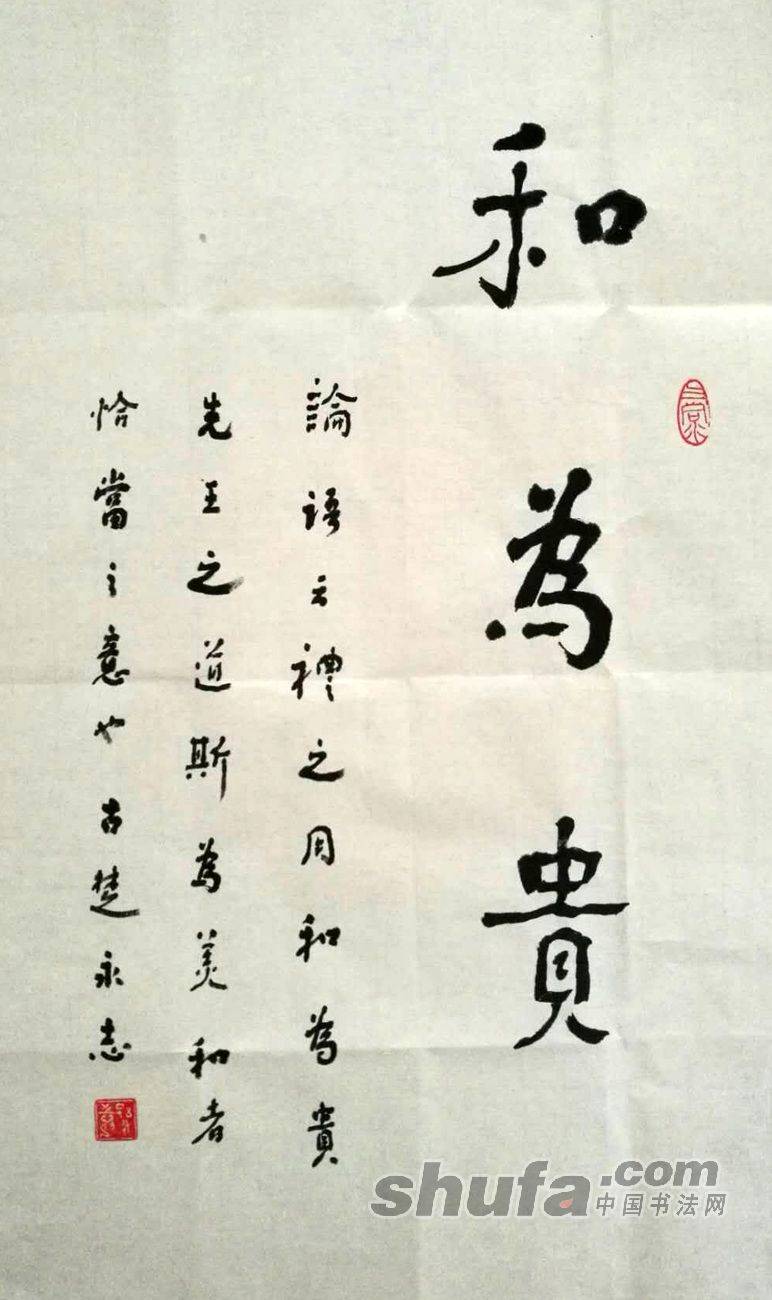 和為貴
論語云禮之用和為貴
先王之道斯為美和者
恰當之意也古楚永志
shufa.com
中国书法网